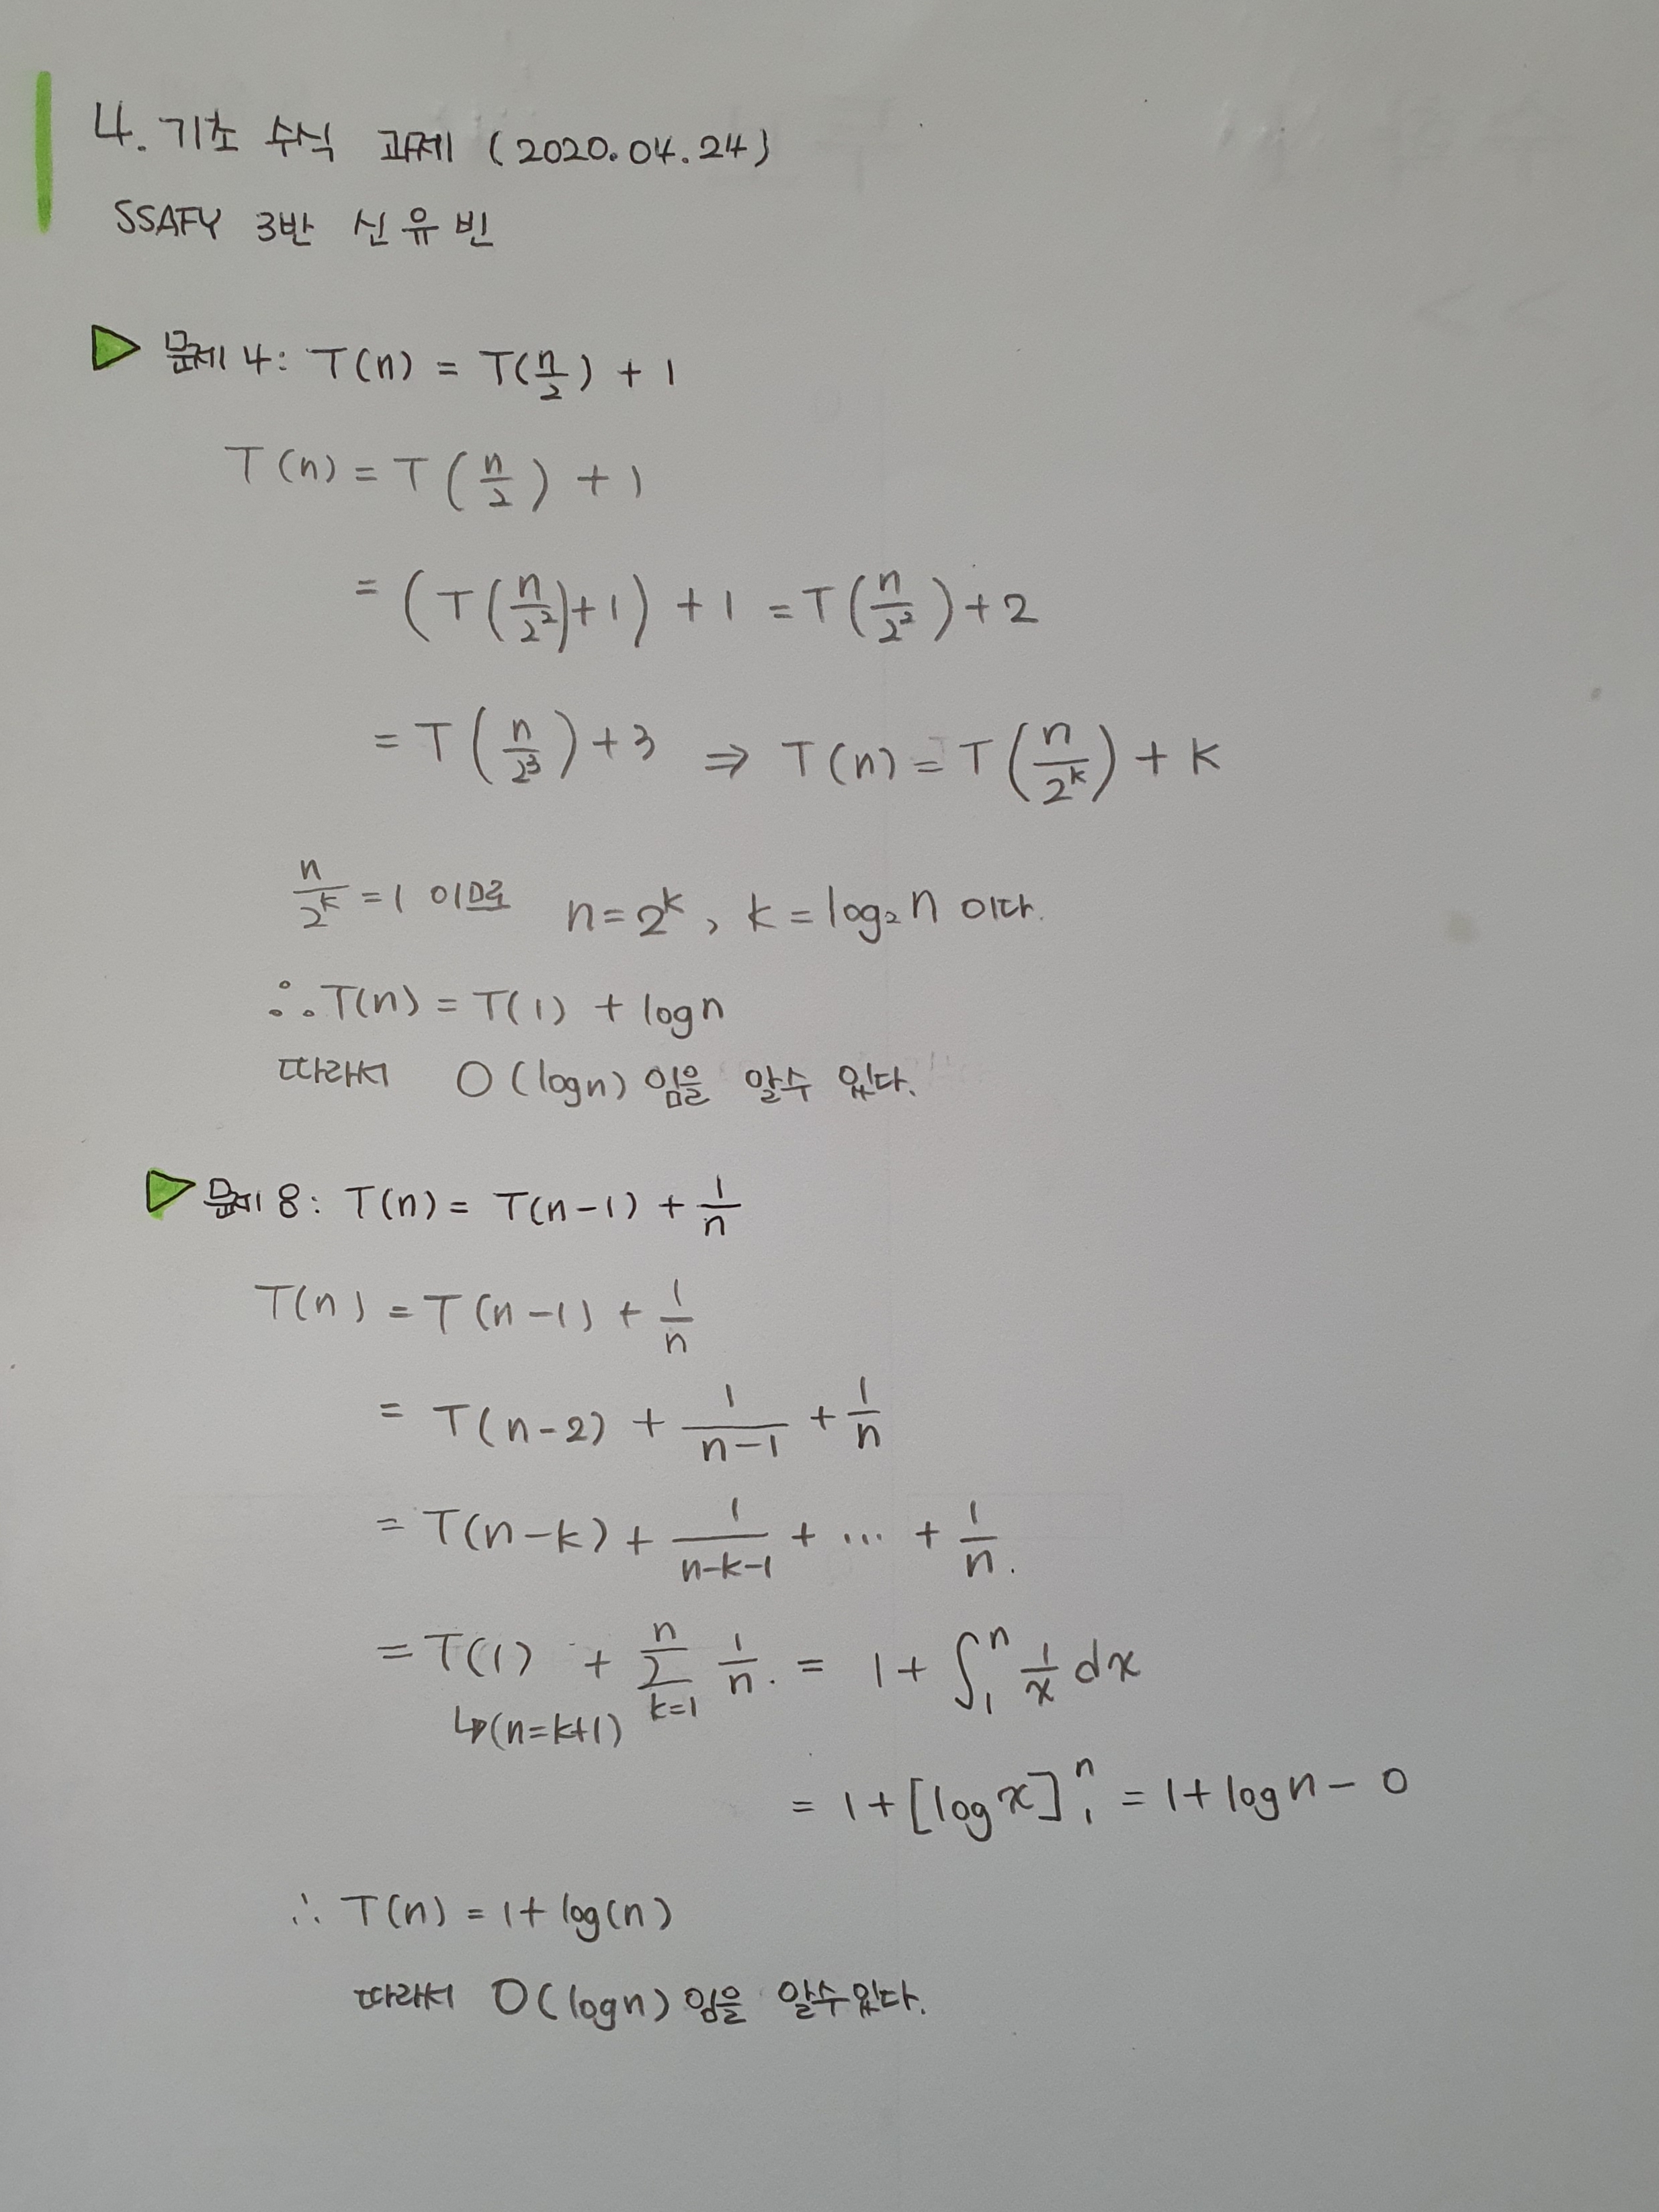 4. 기초 수식 과제 (2020.04.24)
SSAFY 3반 신유빈
문제 4: T(n) = T(n/2) + 1
T(n) = T(n/2) + 1
= (T(n/2²)+1) + 1 = T(n/2²)+2
= T(n/2³)+3 ⇒ T(n) = T(n/2^k) + k
n/2^k = 1 이므로 n=2^k, k = log₂n 이다.
∴ T(n) = T(1) + logn
따라서 O(logn) 임을 알수 있다.
문제 8: T(n) = T(n-1) + 1/n
T(n) = T(n-1) + 1/n
= T(n-2) + 1/(n-1) + 1/n
= T(n-k) + 1/(n-k-1) + ... + 1/n.
= T(1) + Σ_{k=1}^{n} 1/n. = 1 + ∫₁ⁿ 1/x dx
↳(n=k+1)
= 1 + [log x]₁ⁿ = 1 + log n - 0
∴ T(n) = 1 + log(n)
따라서 O(logn) 임을 알수있다.